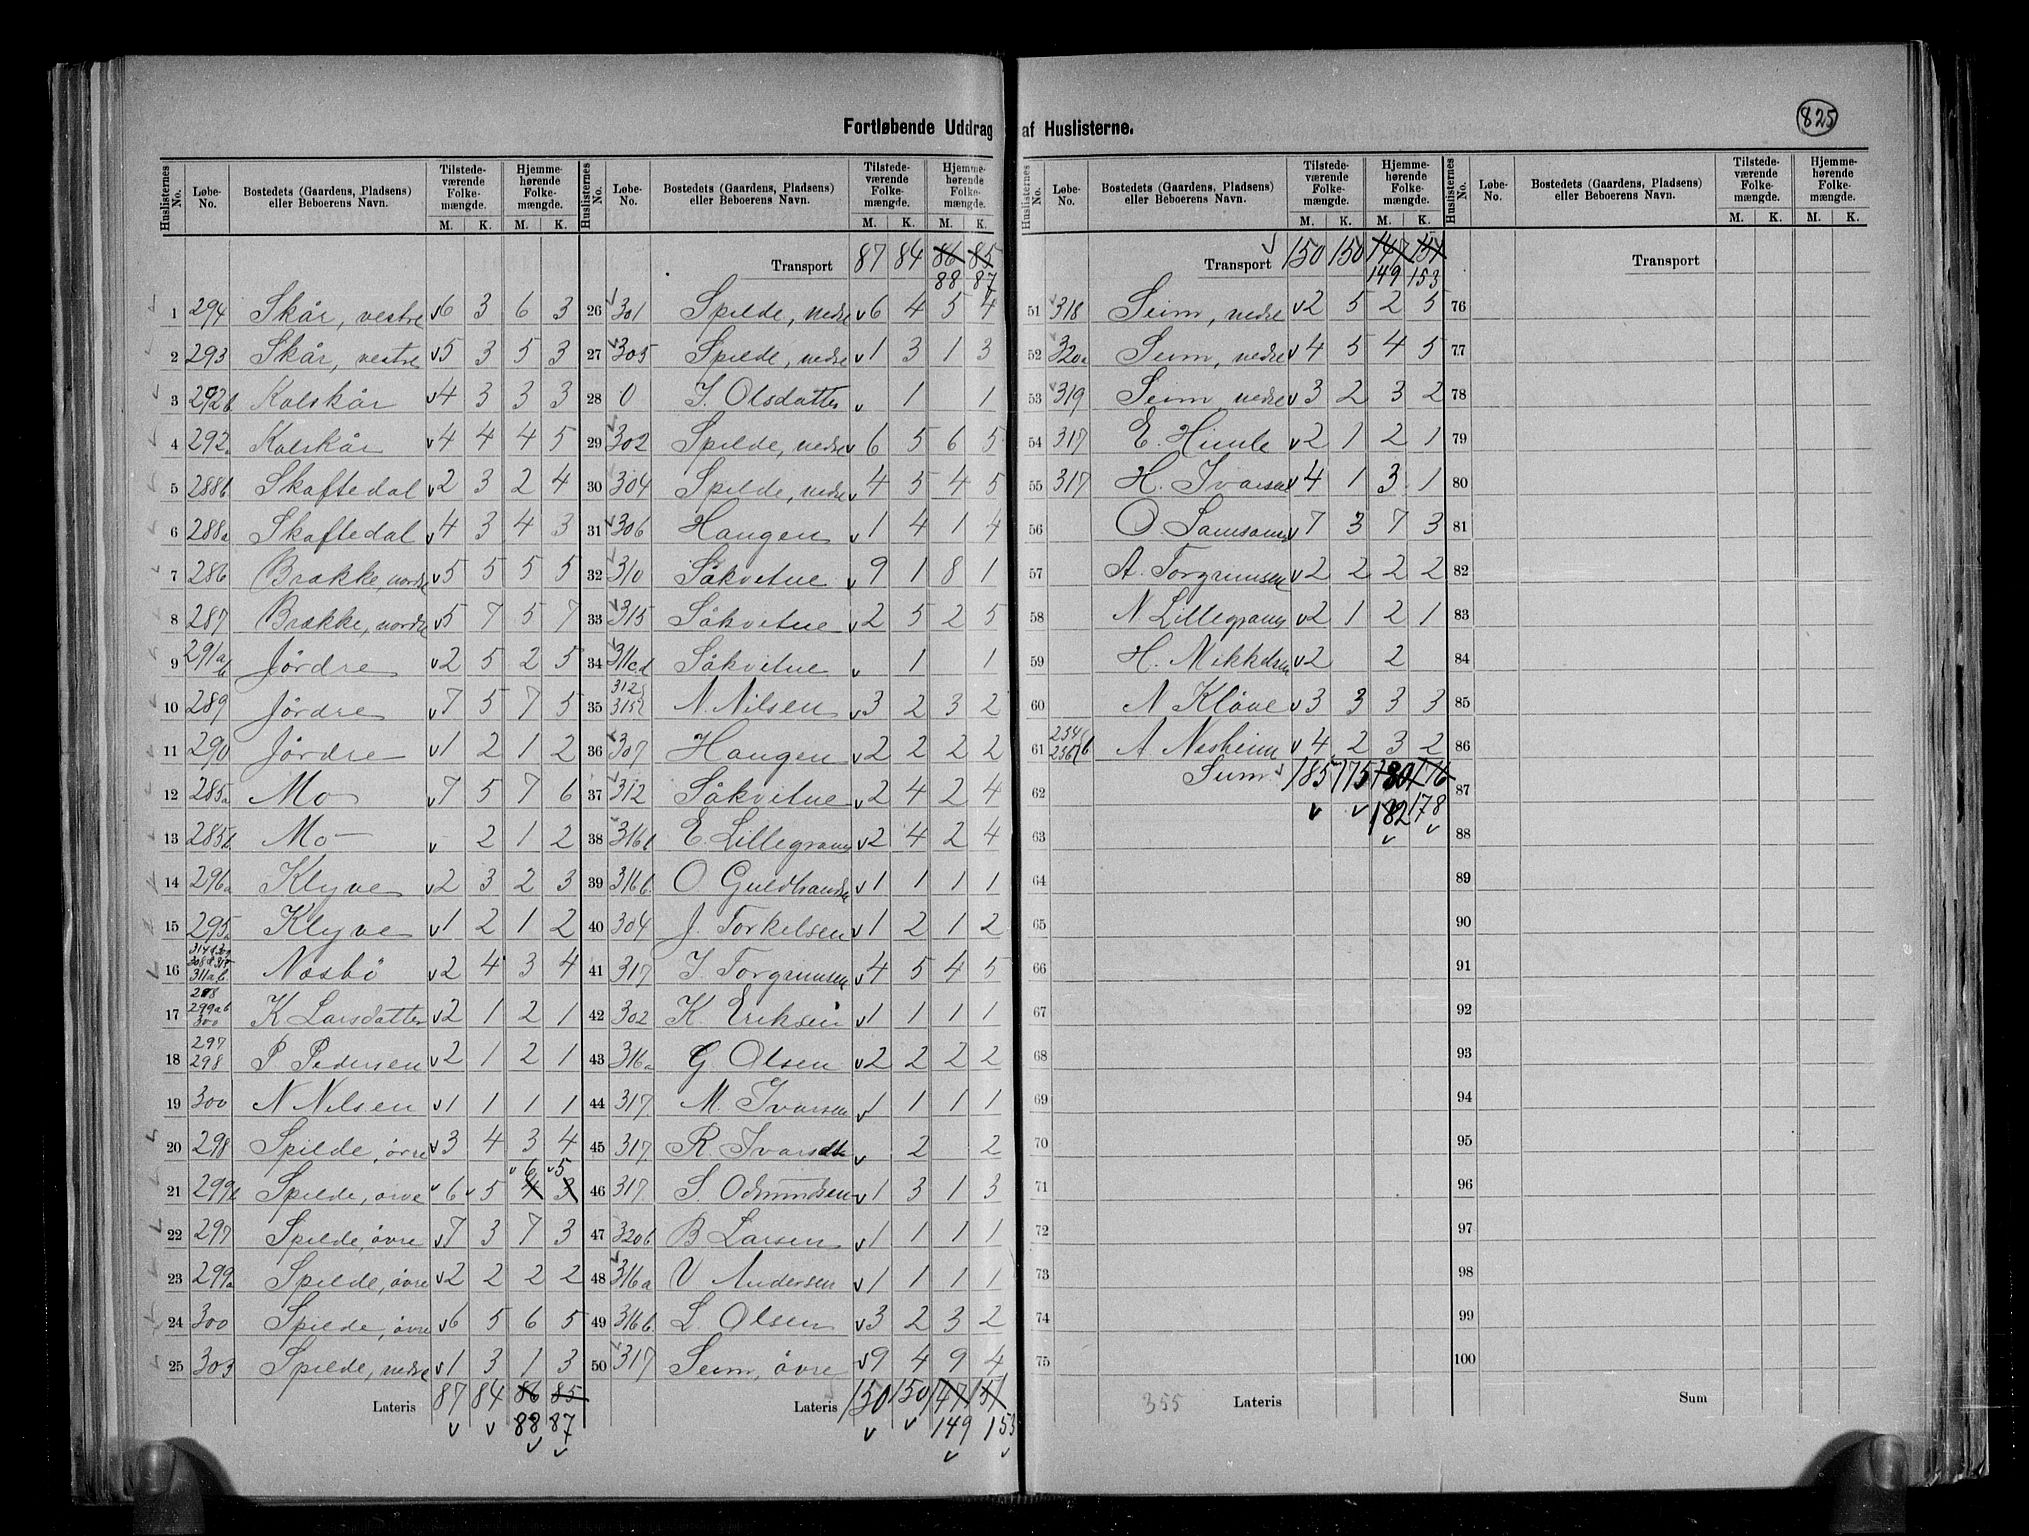 825
Fortløbende Uddrag af Huslisterne.
Huslisternes No. Løbe-No. Bostedets (Gaardens, Pladsens) eller Beboerens Navn. Tilstedeværende Folkemængde. M. K. Hjemmehørende Folkemængde. M. K.
1 294 Skår, vestre 6 3 6 3
2 293 Skår, vestre 5 3 5 3
3 292b Kolskår 4 3 3 3
4 292a Kolskår 4 4 4 5
5 288b Skaftedal 2 3 2 4
6 288a Skaftedal 4 3 4 3
7 286 Brække, nordre 5 5 5 5
8 287 Brække, nordre 5 7 5 7
9 291ab Jördre 2 5 2 5
10 289 Jördre 7 5 7 5
11 290 Jördre 1 2 1 2
12 285a Mo 7 5 7 6
13 285b Mo 2 1 2
14 296a Klyve 2 3 2 3
15 295 Klyve 1 2 1 2
16 311ab Næsbö 2 4 3 4
17 298 299ab 300 K Larsdatter 2 1 2 1
18 297 298 P Pedersen 2 1 2 1
19 300 N Nilsen 1 1 1 1
20 298 Spilde, övre 3 4 3 4
21 299b Spilde, övre 6 5 4 3 6 5
22 297 Spilde, övre 7 3 7 3
23 299a Spilde, övre 2 2 2 2
24 300 Spilde, övre 6 5 6 5
25 303 Spilde, nedre 1 3 1 3
Lateris 87 84 86 85
88 87
Huslisternes No. Løbe-No. Bostedets (Gaardens, Pladsens) eller Beboerens Navn. Tilstedeværende Folkemængde. M. K. Hjemmehørende Folkemængde. M. K.
Transport 87 84 86 85
88 87
26 301 Spilde, nedre 6 4 5 4
27 305 Spilde, nedre 1 3 1 3
28 0 I. Olsdatter 1 1
29 302 Spilde, nedre 6 5 6 5
30 304 Spilde, nedre 4 5 4 5
31 306 Haugen 1 4 1 4
32 310 Såkvitne 9 1 8 1
33 315 Såkvitne 2 5 2 5
34 311cd Såkvitne 1 1
35 312 315 N. Nilsen 3 2 3 2
36 307 Haugen 2 2 2 2
37 312 Såkvitne 2 4 2 4
38 316b E. Lillegraven 2 4 2 4
39 316b O Guldbrandsen 1 1 1 1
40 304 J. Torkelsen 1 2 1 2
41 317 I. Torgrimsen 4 5 4 5
42 302 K. Eriksen 1 1 1 1
43 316a G Olsen 2 2 2 2
44 317 M. Ivarsen 1 1 1 1
45 317 R. Ivarsdtr 2 2
46 317 S. Odmundsen 1 3 1 3
47 320b B Larsen 1 1 1 1
48 316a V Andersen 1 1 1 1
49 316b L. Olsen 3 2 3 2
50 317 Seim, övre 9 4 9 4
Lateris 150 150 147 151
149 153
Huslisternes No. Løbe-No. Bostedets (Gaardens, Pladsens) eller Beboerens Navn. Tilstedeværende Folkemængde. M. K. Hjemmehørende Folkemængde. M. K.
Transport 150 150 147 151
149 153
51 318 Seim, nedre 2 5 2 5
52 320a Seim, nedre 4 5 4 5
53 319 Seim, nedre 3 2 3 2
54 317 E. Himle 2 1 2 1
55 317 H. Ivarsen 4 1 3 1
56 O Samsonsen 7 3 7 3
57 A. Torgrimsen 2 2 2 2
58 N Lillegraven 2 1 2 1
59 H. Mikkelsen 2 2
60 N Klöve 3 3 3 3
61 254 256b A. Næsheim 4 2 3 2
62 Sum 185 175 180 176
182 178
63
64
65
66
67
68
69
70
71
72
73
74
75
355 Lateris
Huslisternes No. Løbe-No. Bostedets (Gaardens, Pladsens) eller Beboerens Navn. Tilstedeværende Folkemængde. M. K. Hjemmehørende Folkemængde. M. K.
Transport
76
77
78
79
80
81
82
83
84
85
86
87
88
89
90
91
92
93
94
95
96
97
98
99
100
Sum